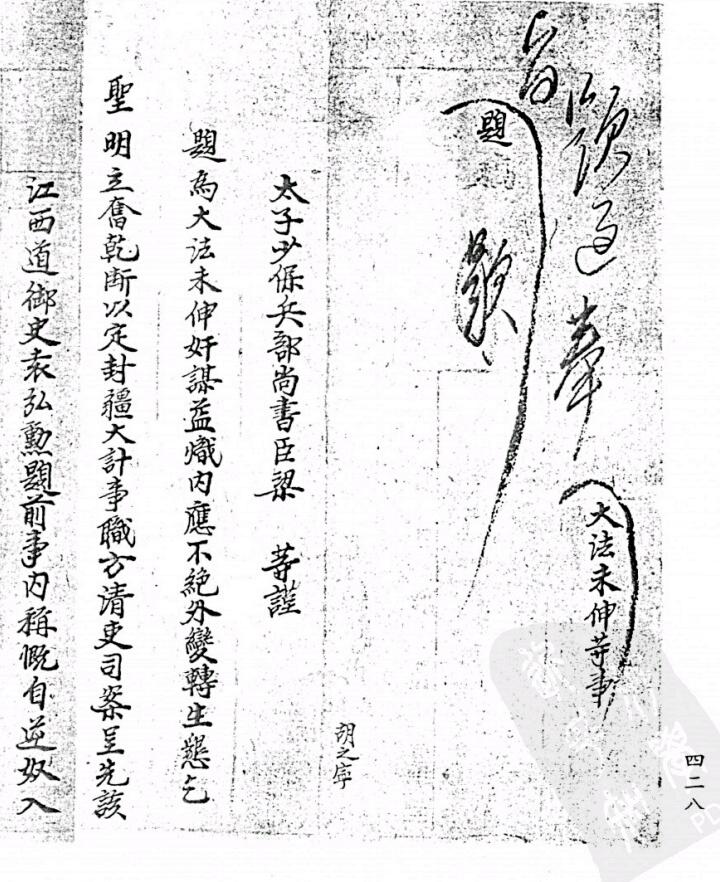 題
大法未伸等事
胡之寧
太子少保兵部尚書臣梁 等謹
題為大法未伸奸謀益熾內應不絕外變轉生懇乞
聖明立奮乾斷以定封疆大計事職方清吏司案呈先該
江西道御史袁弘勳題前事內稱慨自逆奴入
四二八